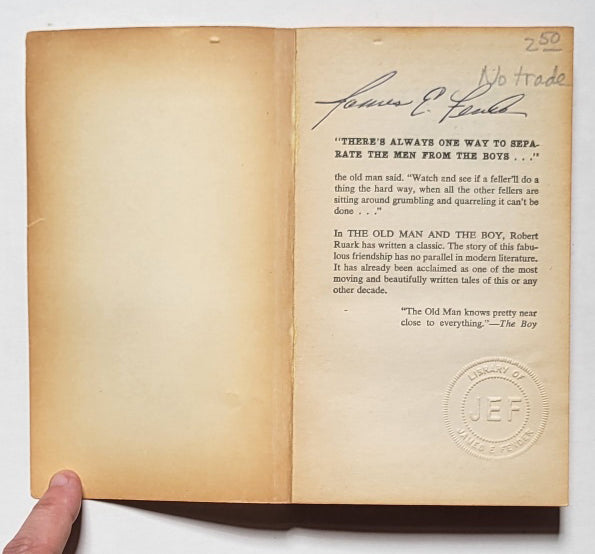 2 50
No trade
James E. Fender
"THERE'S ALWAYS ONE WAY TO SEPA-
RATE THE MEN FROM THE BOYS . . ."
the old man said. "Watch and see if a feller'll do a
thing the hard way, when all the other fellers are
sitting around grumbling and quarreling it can't be
done . . ."
In THE OLD MAN AND THE BOY, Robert
Ruark has written a classic. The story of this fabu-
lous friendship has no parallel in modern literature.
It has already been acclaimed as one of the most
moving and beautifully written tales of this or any
other decade.
"The Old Man knows pretty near
close to everything."—The Boy
LIBRARY OF
JEF
JAMES E FENDER